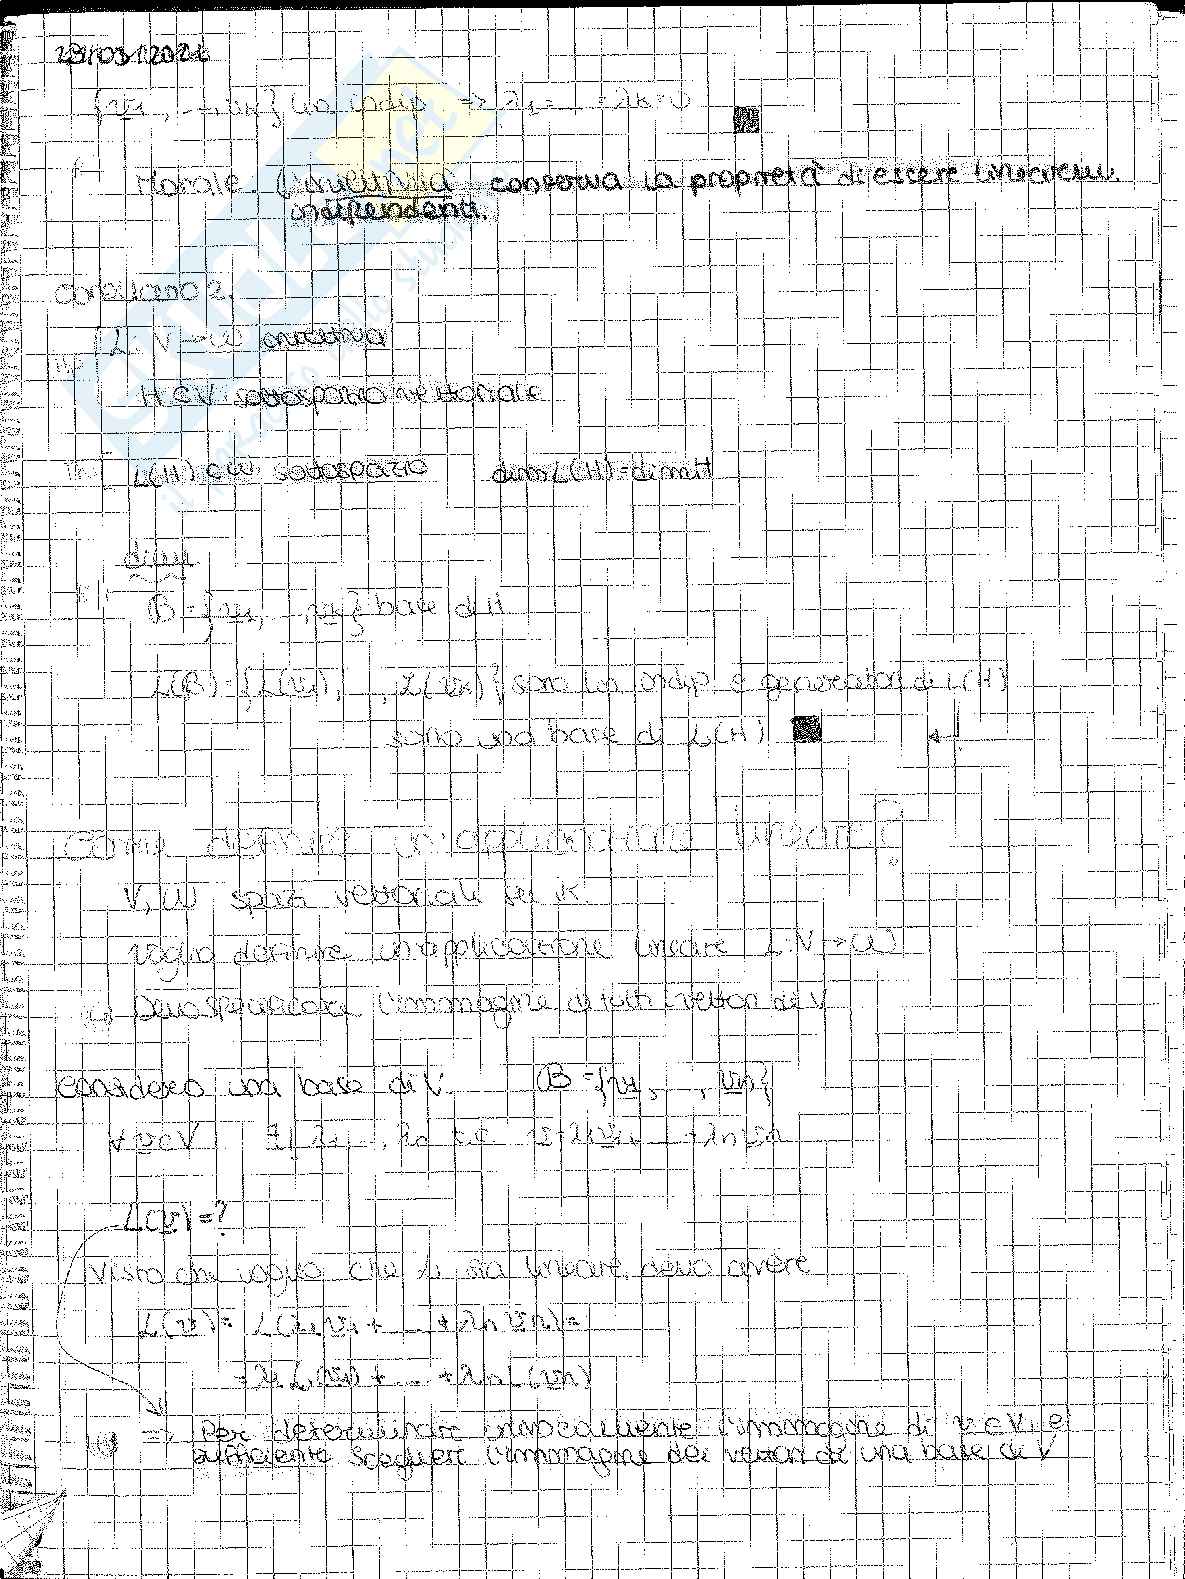 29/03/2021
{v1, ..., vk} lin indip. => λ1 = ... = λk = 0
Morale. L'iniettività conserva la proprietà di essere linearem.
indipendenti.
Corollario 2.
Hp L: V → W iniettiva
H ⊂ V sottospazio vettoriale
Th L(H) ⊂ W sottospazio dim L(H) = dim H
dim
B = {v1, ..., vk} base di H
L(B) = {L(v1), ..., L(vk)} sono lin indip e generatori di L(H)
sono una base di L(H)
Come definire un'applicazione lineare?
V, W spazi vettoriali su K.
voglio definire un'applicazione lineare L: V → W
Devo specificare l'immagine di tutti i vettori di V
Considero una base di V. B = {v1, ..., vn}
∀ v ∈ V ∃! λ1, ..., λn t.c. v = λ1v1 + ... + λnvn
L(v) = ?
Visto che voglio che L sia lineare, devo avere
L(v) = L(λ1v1 + ... + λnvn) =
= λ1L(v1) + ... + λnL(vn)
=> Per determinare univocamente l'immagine di v ∈ V, è
sufficiente scegliere l'immagine dei vettori di una base di V